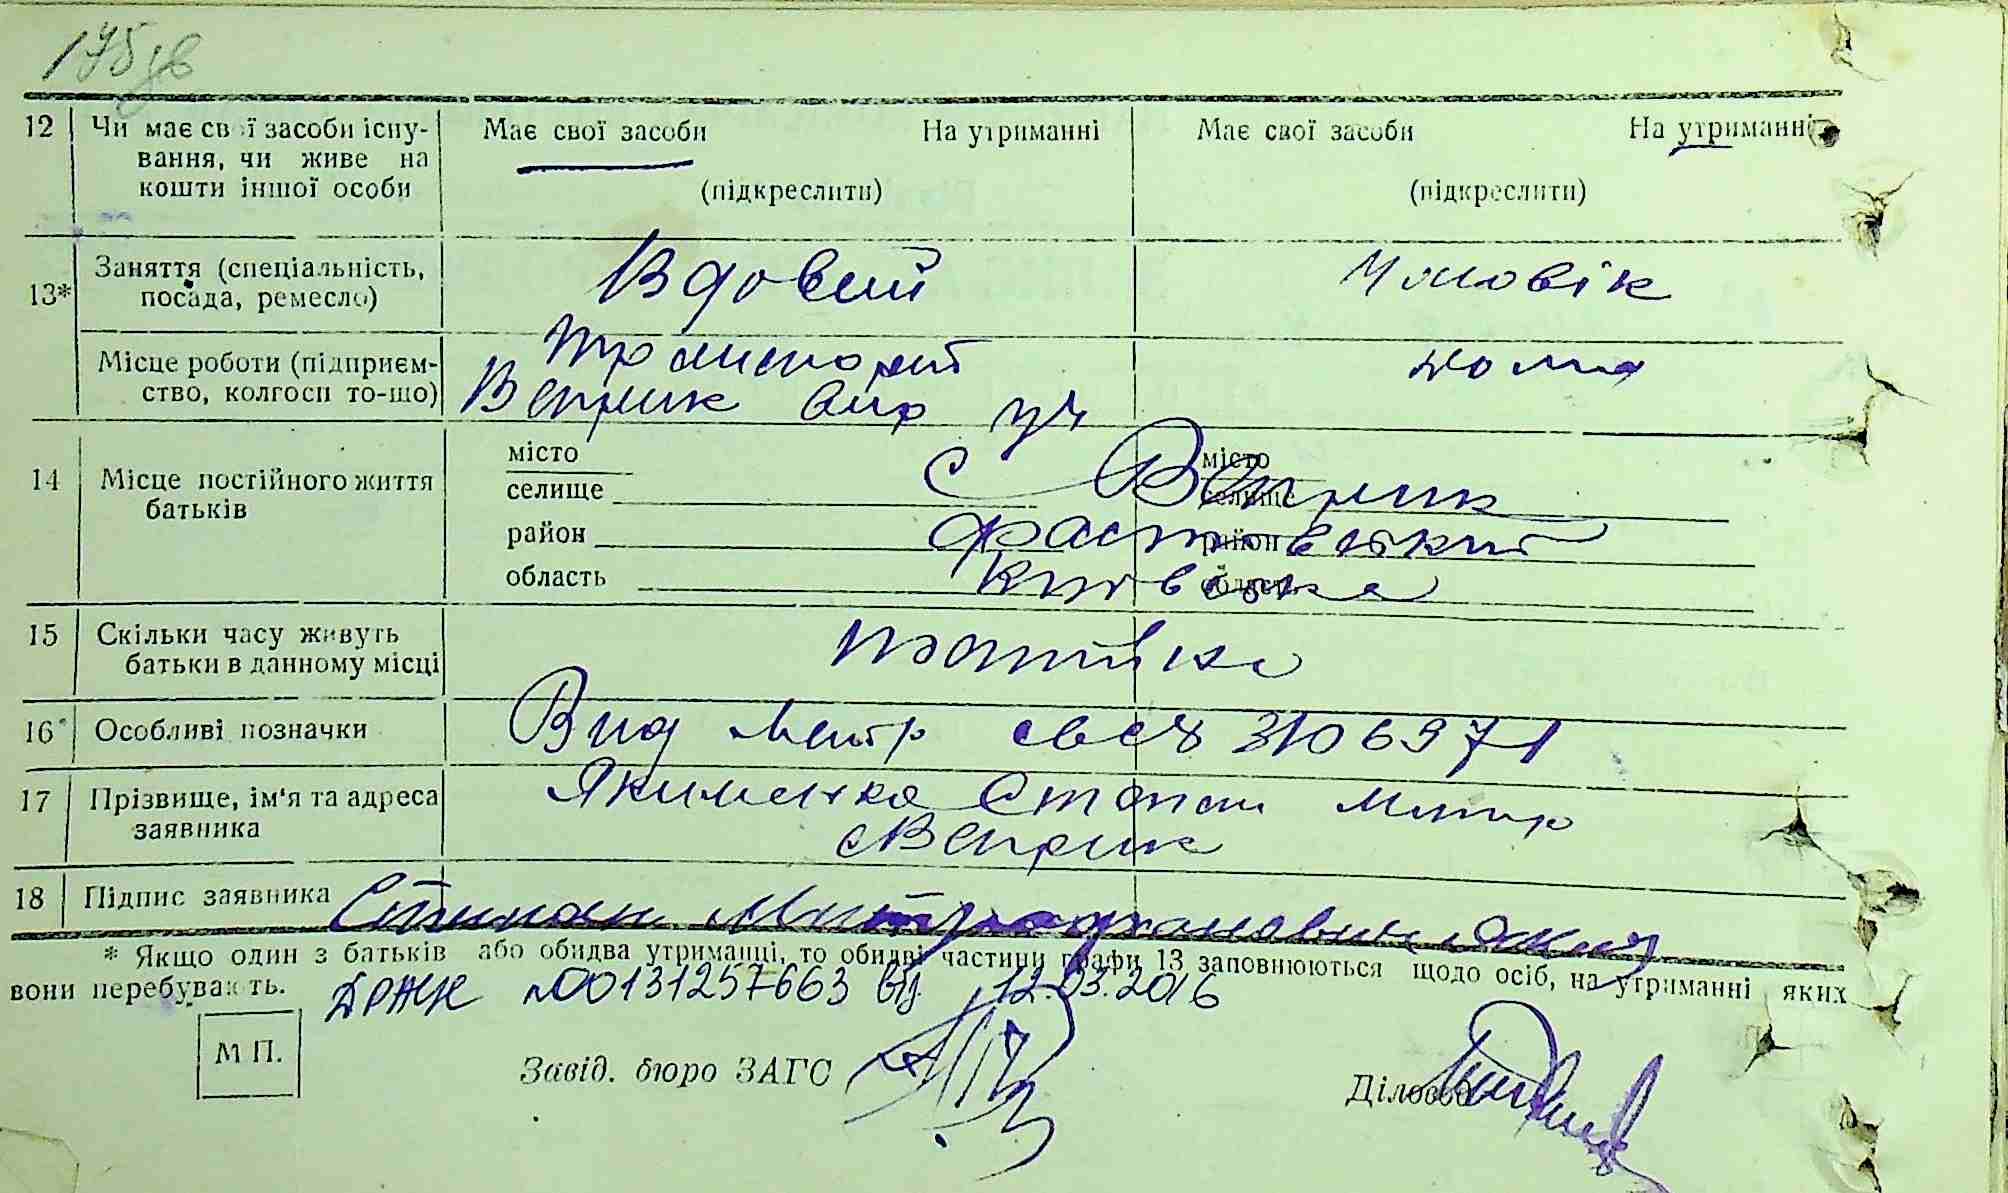 175 зв
12 Чи має свої засоби існу- Має свої засоби На утриманні Має свої засоби На утриманні
вання, чи живе на
кошти іншої особи (підкреслити) (підкреслити)
13* Заняття (спеціальність, посада, ремесло) Чоловік
Місце роботи (підприєм- Транспорт дома
ство, колгосп то-що) Веприк уч
14 Місце постійного життя батьків
місто с Веприк місто
селище селище
район Фастовський район
область Київська область
15 Скільки часу живуть
батьки в данному місці постійно
16 Особливі позначки Вид метр 3106971
17 Прізвище, ім'я та адреса Якименко Степан Митр
заявника с Веприк
18 Підпис заявника Степан Митрофанович
* Якщо один з батьків або обидва утриманці, то обидві частини графи 13 заповнюються щодо осіб, на утриманні яких
вони перебувають. 00131257663 від 12.03.2016
М П. Завід. бюро ЗАГС
Діловод